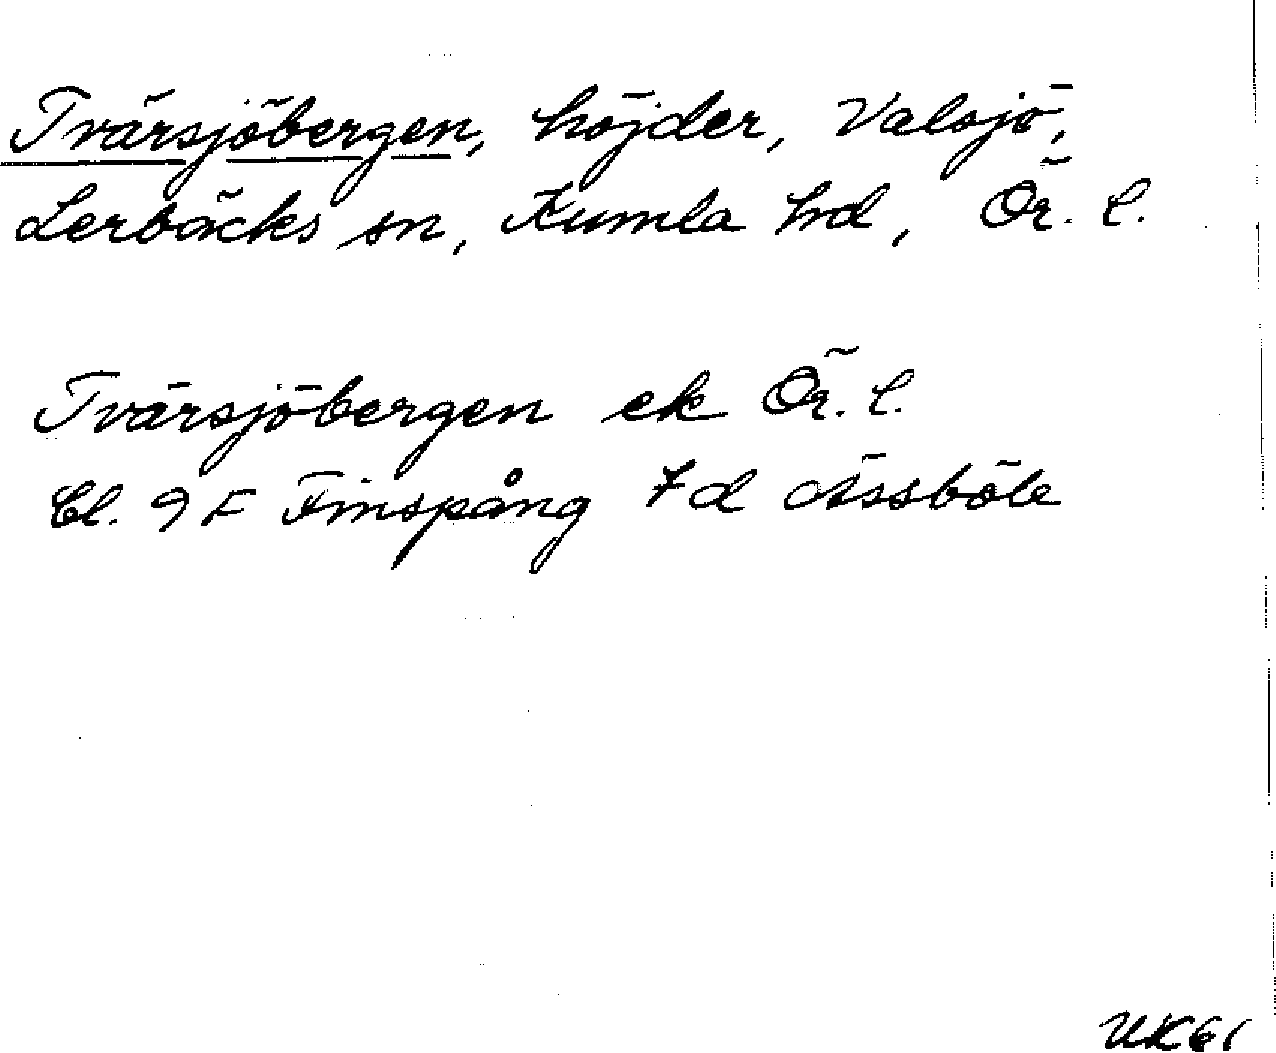 Tvärsjöbergen, höjder, Valsjö,
Lerbäcks sn, Kumla hd, Ör. l.
Tvärsjöbergen ek Ör. l.
Bl. 9 F Finspång 7d Åssböle
UK 61